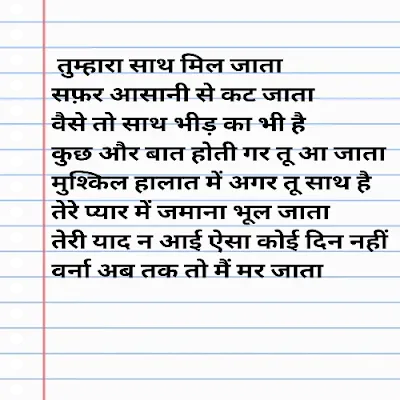 तुम्हारा साथ मिल जाता
सफ़र आसानी से कट जाता
वैसे तो साथ भीड़ का भी है
कुछ और बात होती गर तू आ जाता
मुश्किल हालात में अगर तू साथ है
तेरे प्यार में जमाना भूल जाता
तेरी याद न आई ऐसा कोई दिन नहीं
वर्ना अब तक तो मैं मर जाता